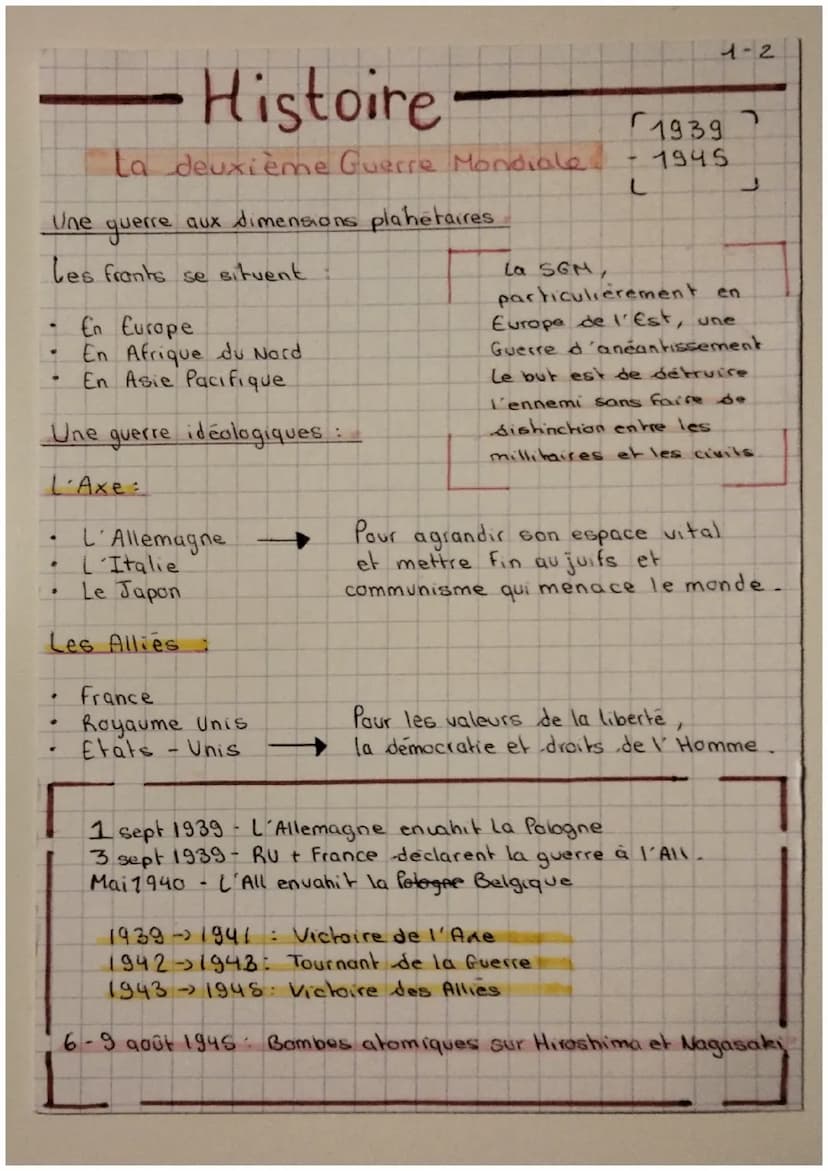 1-2
Histoire
La deuxième Guerre Mondiale
1939
- 1945
Une guerre aux dimensions planétaires
Les fronts se situent :
• En Europe
• En Afrique du Nord
• En Asie Pacifique
La SGM,
particulièrement en
Europe de l'Est, une
Guerre d'anéantissement
Le but est de détruire
l'ennemi sans faire de
distinction entre les
millitaires et les civils
Une guerre idéologiques :
L'Axe :
• L'Allemagne →
• L'Italie
• Le Japon
Pour agrandir son espace vital
et mettre fin au juifs et
communisme qui menace le monde.
Les Alliés :
• France
• Royaume Unis
• Etats - Unis →
Pour les valeurs de la liberté,
la démocratie et droits de l'Homme.
1 sept 1939 - L'Allemagne envahit La Pologne
3 sept 1939 - RU + France déclarent la guerre à l'All.
Mai 1940 - L'All envahit la Pologne Belgique
1939 → 1941 : Victoire de l'Axe
1942 → 1943 : Tournant de la Guerre
1943 → 1945 : Victoire des Alliés
6 - 9 août 1945 : Bombes atomiques sur Hiroshima et Nagasaki